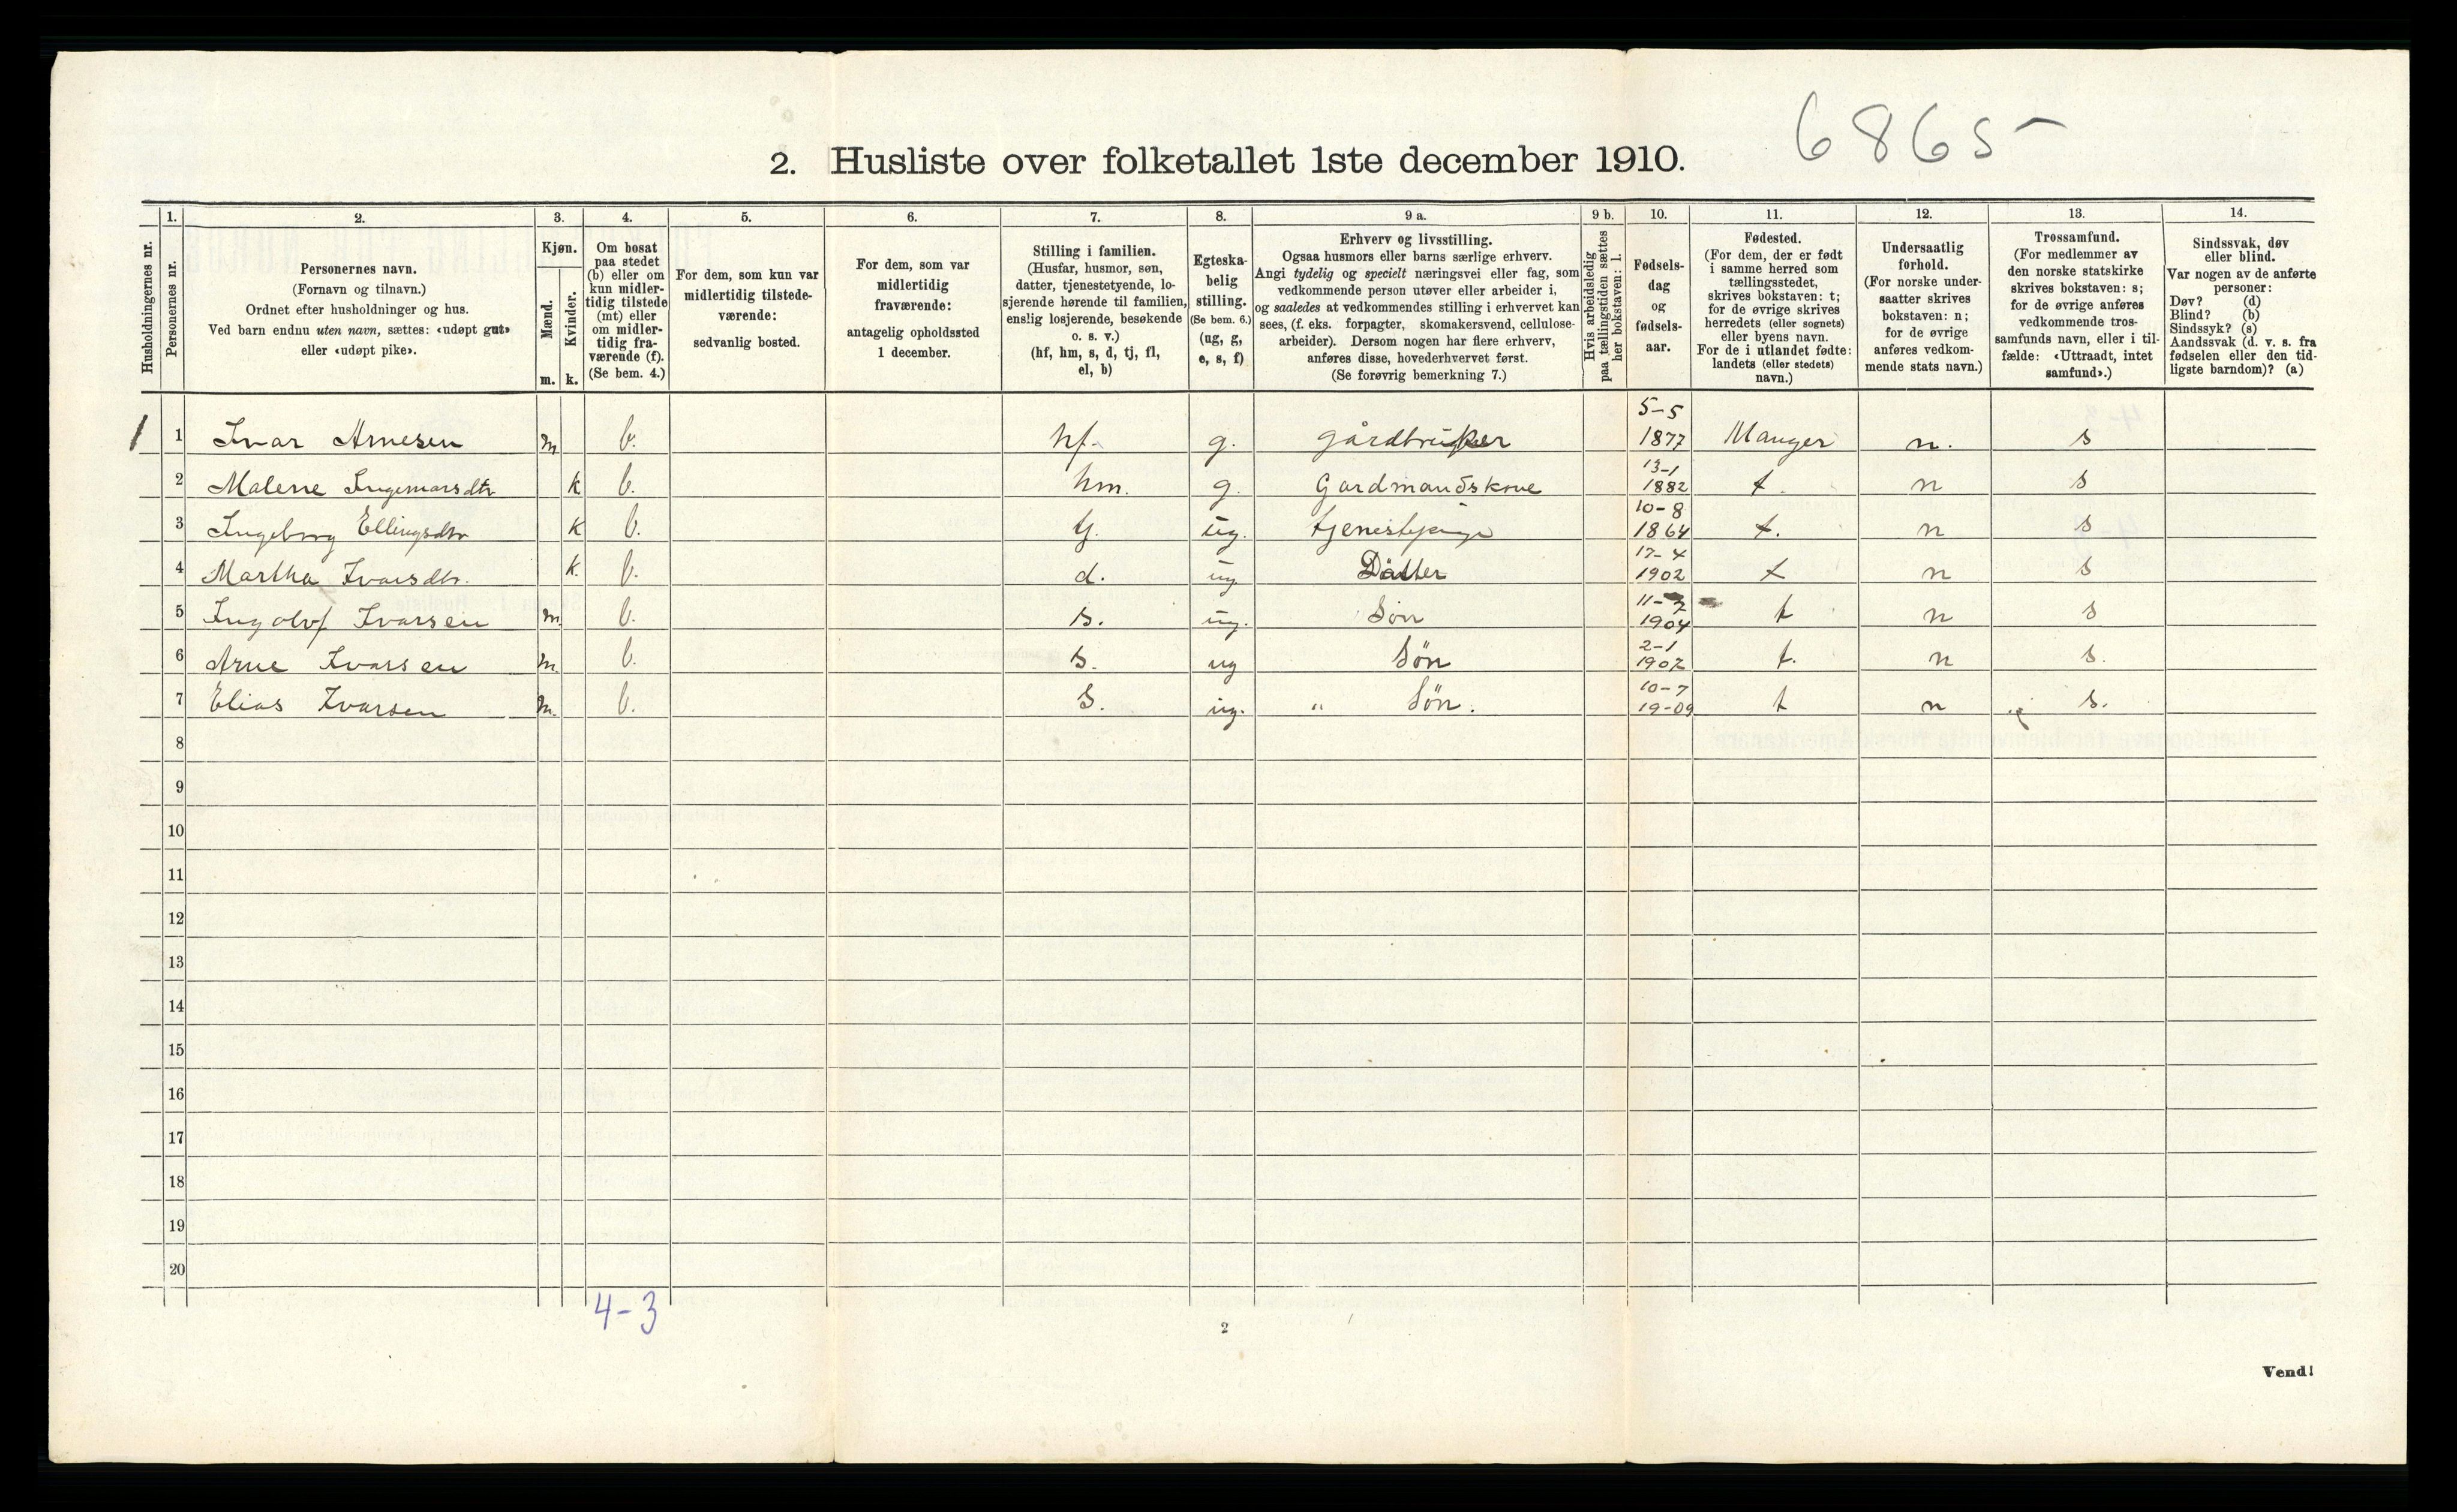 6865
2. Husliste over folketallet 1ste december 1910.
Husholdningernes nr.
1.
Personernes nr.
2.
Personernes navn.
(Fornavn og tilnavn.)
Ordnet efter husholdninger og hus.
Ved barn endnu uten navn, sættes: «udøpt gut»
eller «udøpt pike».
3.
Kjøn.
Mænd.
Kvinder.
m. k.
4.
Om bosat
paa stedet
(b) eller om
kun midler-
tidig tilstede
(mt) eller
om midler-
tidig fra-
værende (f).
(Se bem. 4.)
5.
For dem, som kun var
midlertidig tilstede-
værende:
sedvanlig bosted.
6.
For dem, som var
midlertidig
fraværende:
antagelig opholdssted
1 december.
7.
Stilling i familien.
(Husfar, husmor, søn,
datter, tjenestetyende, lo-
sjerende hørende til familien,
enslig losjerende, besøkende
o. s. v.)
(hf, hm, s, d, tj, fl,
el, b)
8.
Egteska-
belig
stilling.
(Se bem. 6.)
(ug, g,
e, s, f)
9 a.
Erhverv og livsstilling.
Ogsaa husmors eller barns særlige erhverv.
Angi tydelig og specielt næringsvei eller fag, som
vedkommende person utøver eller arbeider i,
og saaledes at vedkommendes stilling i erhvervet kan
sees, (f. eks. forpagter, skomakersvend, cellulose-
arbeider). Dersom nogen har flere erhverv,
anføres disse, hovederhvervet først.
(Se forøvrig bemerkning 7.)
9 b.
Hvis arbeidsledig
paa tællingstiden sættes
her bokstaven: l.
10.
Fødsels-
dag
og
fødsels-
aar.
11.
Fødested.
(For dem, der er født
i samme herred som
tællingsstedet,
skrives bokstaven: t;
for de øvrige skrives
herredets (eller sognets)
eller byens navn.
For de i utlandet fødte:
landets (eller stedets)
navn.)
12.
Undersaatlig
forhold.
(For norske under-
saatter skrives
bokstaven: n;
for de øvrige
anføres vedkom-
mende stats navn.)
13.
Trossamfund.
(For medlemmer av
den norske statskirke
skrives bokstaven: s;
for de øvrige anføres
vedkommende tros-
samfunds navn, eller i til-
fælde: «Uttraadt, intet
samfund».)
14.
Sindssvak, døv
eller blind.
Var nogen av de anførte
personer:
Døv? (d)
Blind? (b)
Sindssyk? (s)
Aandssvak (d. v. s. fra
fødselen eller den tid-
ligste barndom)? (a)
1 1 Ivar Arnesen m b. hf. g. gårdbruker 5-5 1877 Manger n. s
2 Malene Ingemarsdtr k b. hm. g. Gardmandskone 13-1 1882 t. n s
3 Ingeborg Ellingsdtr k b. tj. ug. 10-8 1864 t. n s
4 Martha Ivarsdtr. k. b. d. ug. Datter 17-4 1902 t n s
5 Ingolvf Ivarsen m. b. s. ug. Søn 11- 1904 t n s
6 Arne Ivarsen m. b. s. ug Søn 2-1 1907 t. n s.
7 Elias Ivarsen m. b. s. ug. " Søn. 10-7 19-09 t n s.
8
9
10
11
12
13
14
15
16
17
18
19
20
4-3
2
Vend!